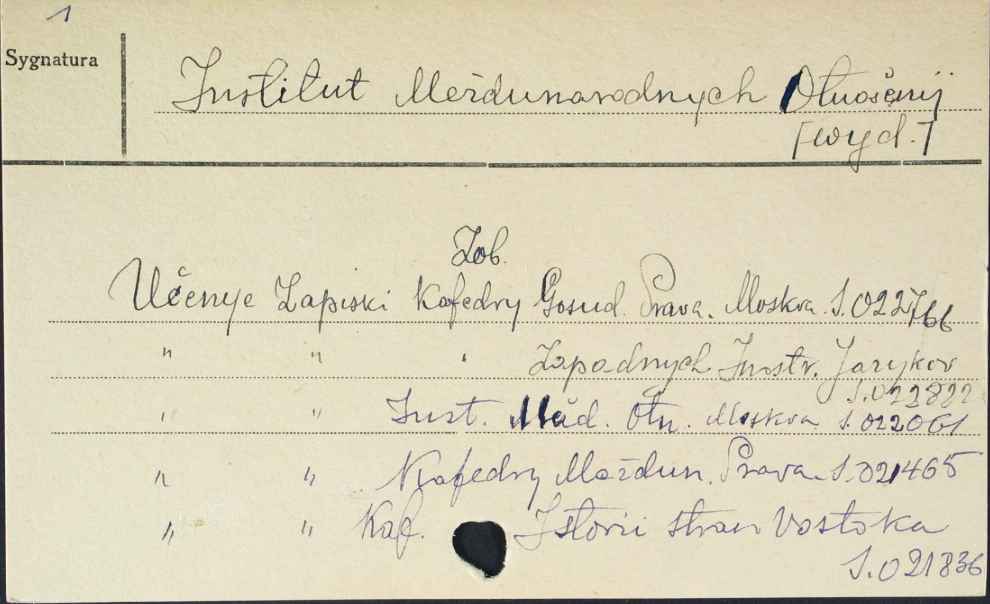 1
Sygnatura
Institut Meždunarodnych Otnošenij
[wyd.]
Zob.
Učenye Zapiski Kafedry Gosud. Prava. Moskva. S.022766
" " " Zapadnych Inostr. Jazykov
S.022822
" " Inst. Mžd. Otn. Moskva S.022061
" " Kafedry Meždun. Prava. S.021465
" " Kaf. Istorii stran Vostoka
S.021836